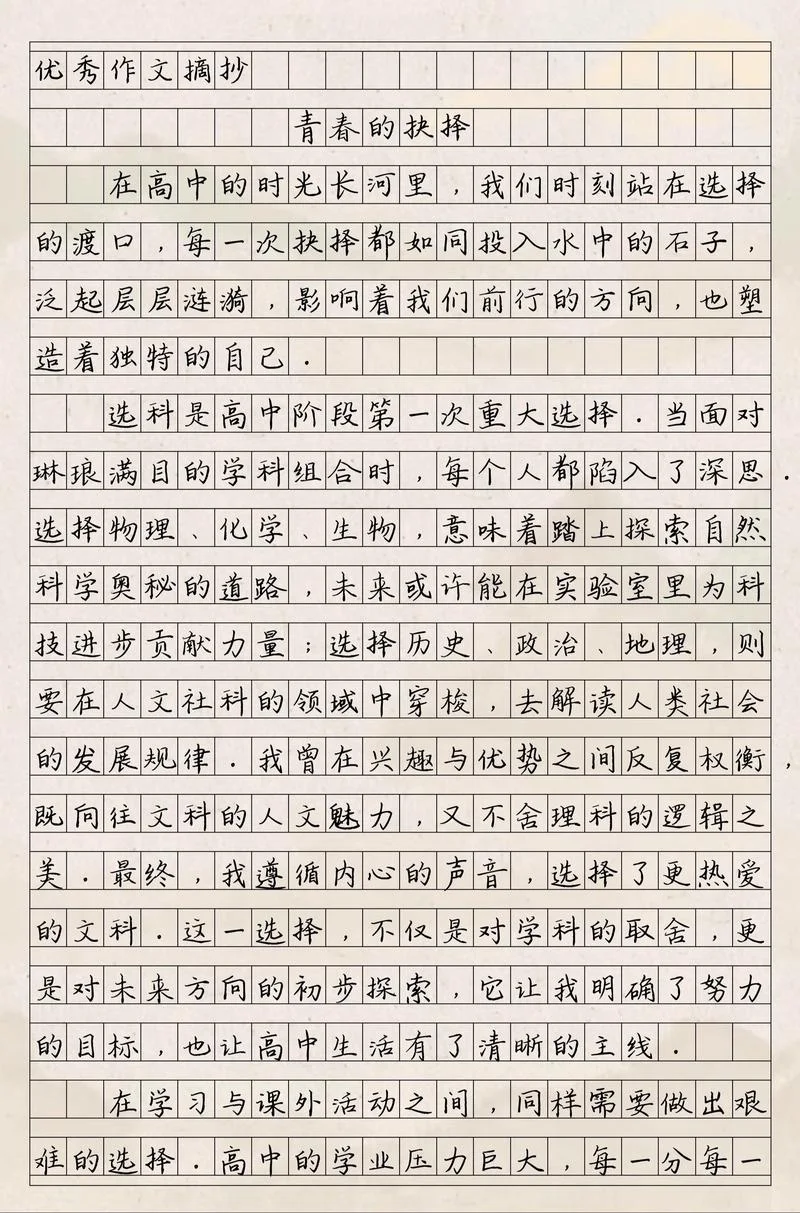 优秀作文摘抄
青春的抉择
在高中的时光长河里，我们时刻站在选择
的渡口，每一次抉择都如同投入水中的石子，
泛起层层涟漪，影响着我们前行的方向，也塑
造着独特的自己．
选科是高中阶段第一次重大选择．当面对
琳琅满目的学科组合时，每个人都陷入了深思．
选择物理、化学、生物，意味着踏上探索自然
科学奥秘的道路，未来或许能在实验室里为科
技进步贡献力量；选择历史、政治、地理，则
要在人文社科的领域中穿梭，去解读人类社会
的发展规律．我曾在兴趣与优势之间反复权衡，
既向往文科的人文魅力，又不舍理科的逻辑之
美．最终，我遵循内心的声音，选择了更热爱
的文科．这一选择，不仅是对学科的取舍，更
是对未来方向的初步探索，它让我明确了努力
的目标，也让高中生活有了清晰的主线．
在学习与课外活动之间，同样需要做出艰
难的选择．高中的学业压力巨大，每一分每一